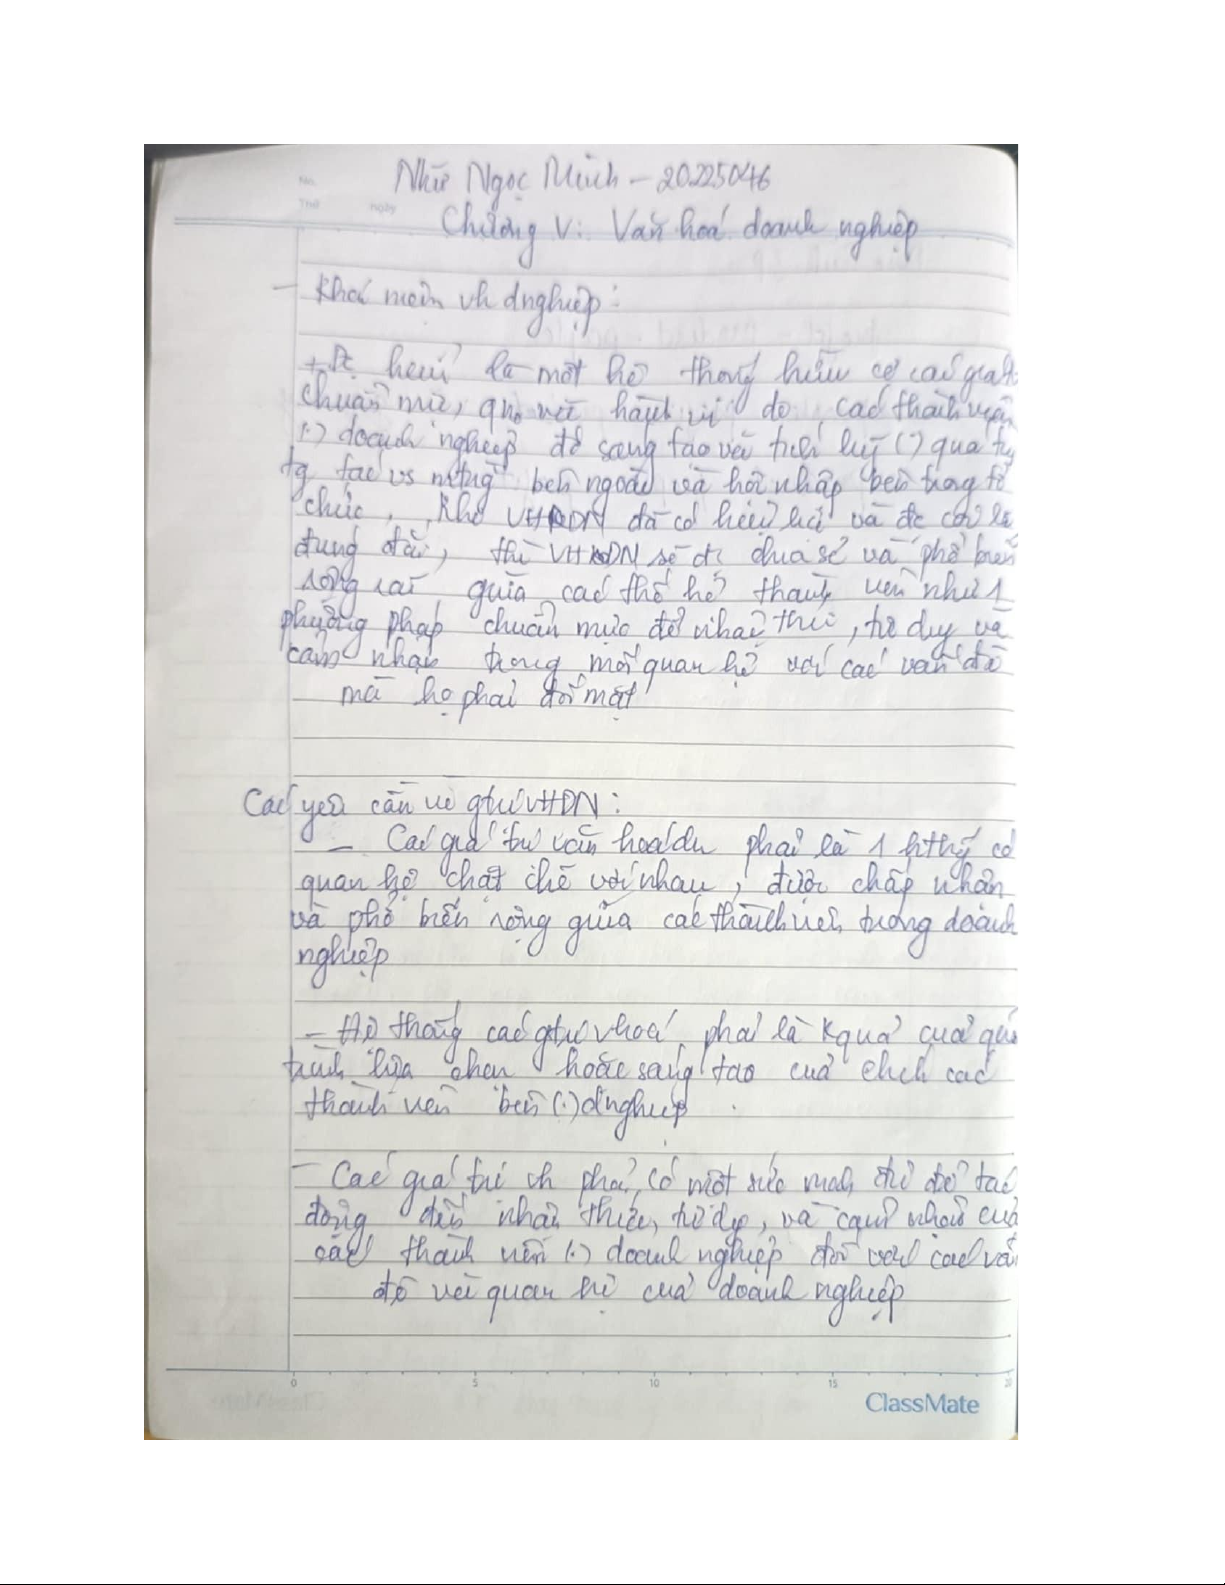 No.
Thứ ngày
Như Ngọc Minh - 20225046
Chương V: Văn hoá doanh nghiệp
- Khái niệm vh dnghiệp:
+ Đc hiểu là một hệ thống hữu cơ các giá trị
chuẩn mực, qniệm và hành vi do các thành viên
(.) doanh nghiệp đó sáng tạo và tích luỹ (.) quá tr
tg tác vs mtrg bên ngoài và hội nhập bên trong tổ
chức, Khi VHDN đã có hiệu lực và đc coi là
đúng đắn, thì VHDN sẽ đc chia sẻ và phổ biến
rộng rãi giữa các thế hệ thành viên như 1
phương pháp chuẩn mực để nhận thức, tư duy và
cảm nhận trong mối quan hệ với các vấn đề
mà họ phải đối mặt
Các yêu cầu về gtrị VHDN:
- Các giá trị văn hoá dn phải là 1 hthg có
quan hệ chặt chẽ với nhau, được chấp nhận
và phổ biến rộng giữa các thành viên trong doanh
nghiệp
- Hệ thống các gtrị vhoá phải là Kquả của quá
trình lựa chọn hoặc sáng tạo của chính các
thành viên bên (.) dnghiệp
- Các giá trị vh phải có một sức mạnh đủ để tác
động đến nhận thức, tư duy, và cảm nhận của
các thành viên (.) doanh nghiệp đối với các vấn
đề và quan hệ của doanh nghiệp
0 5 10 15 20
ClassMate